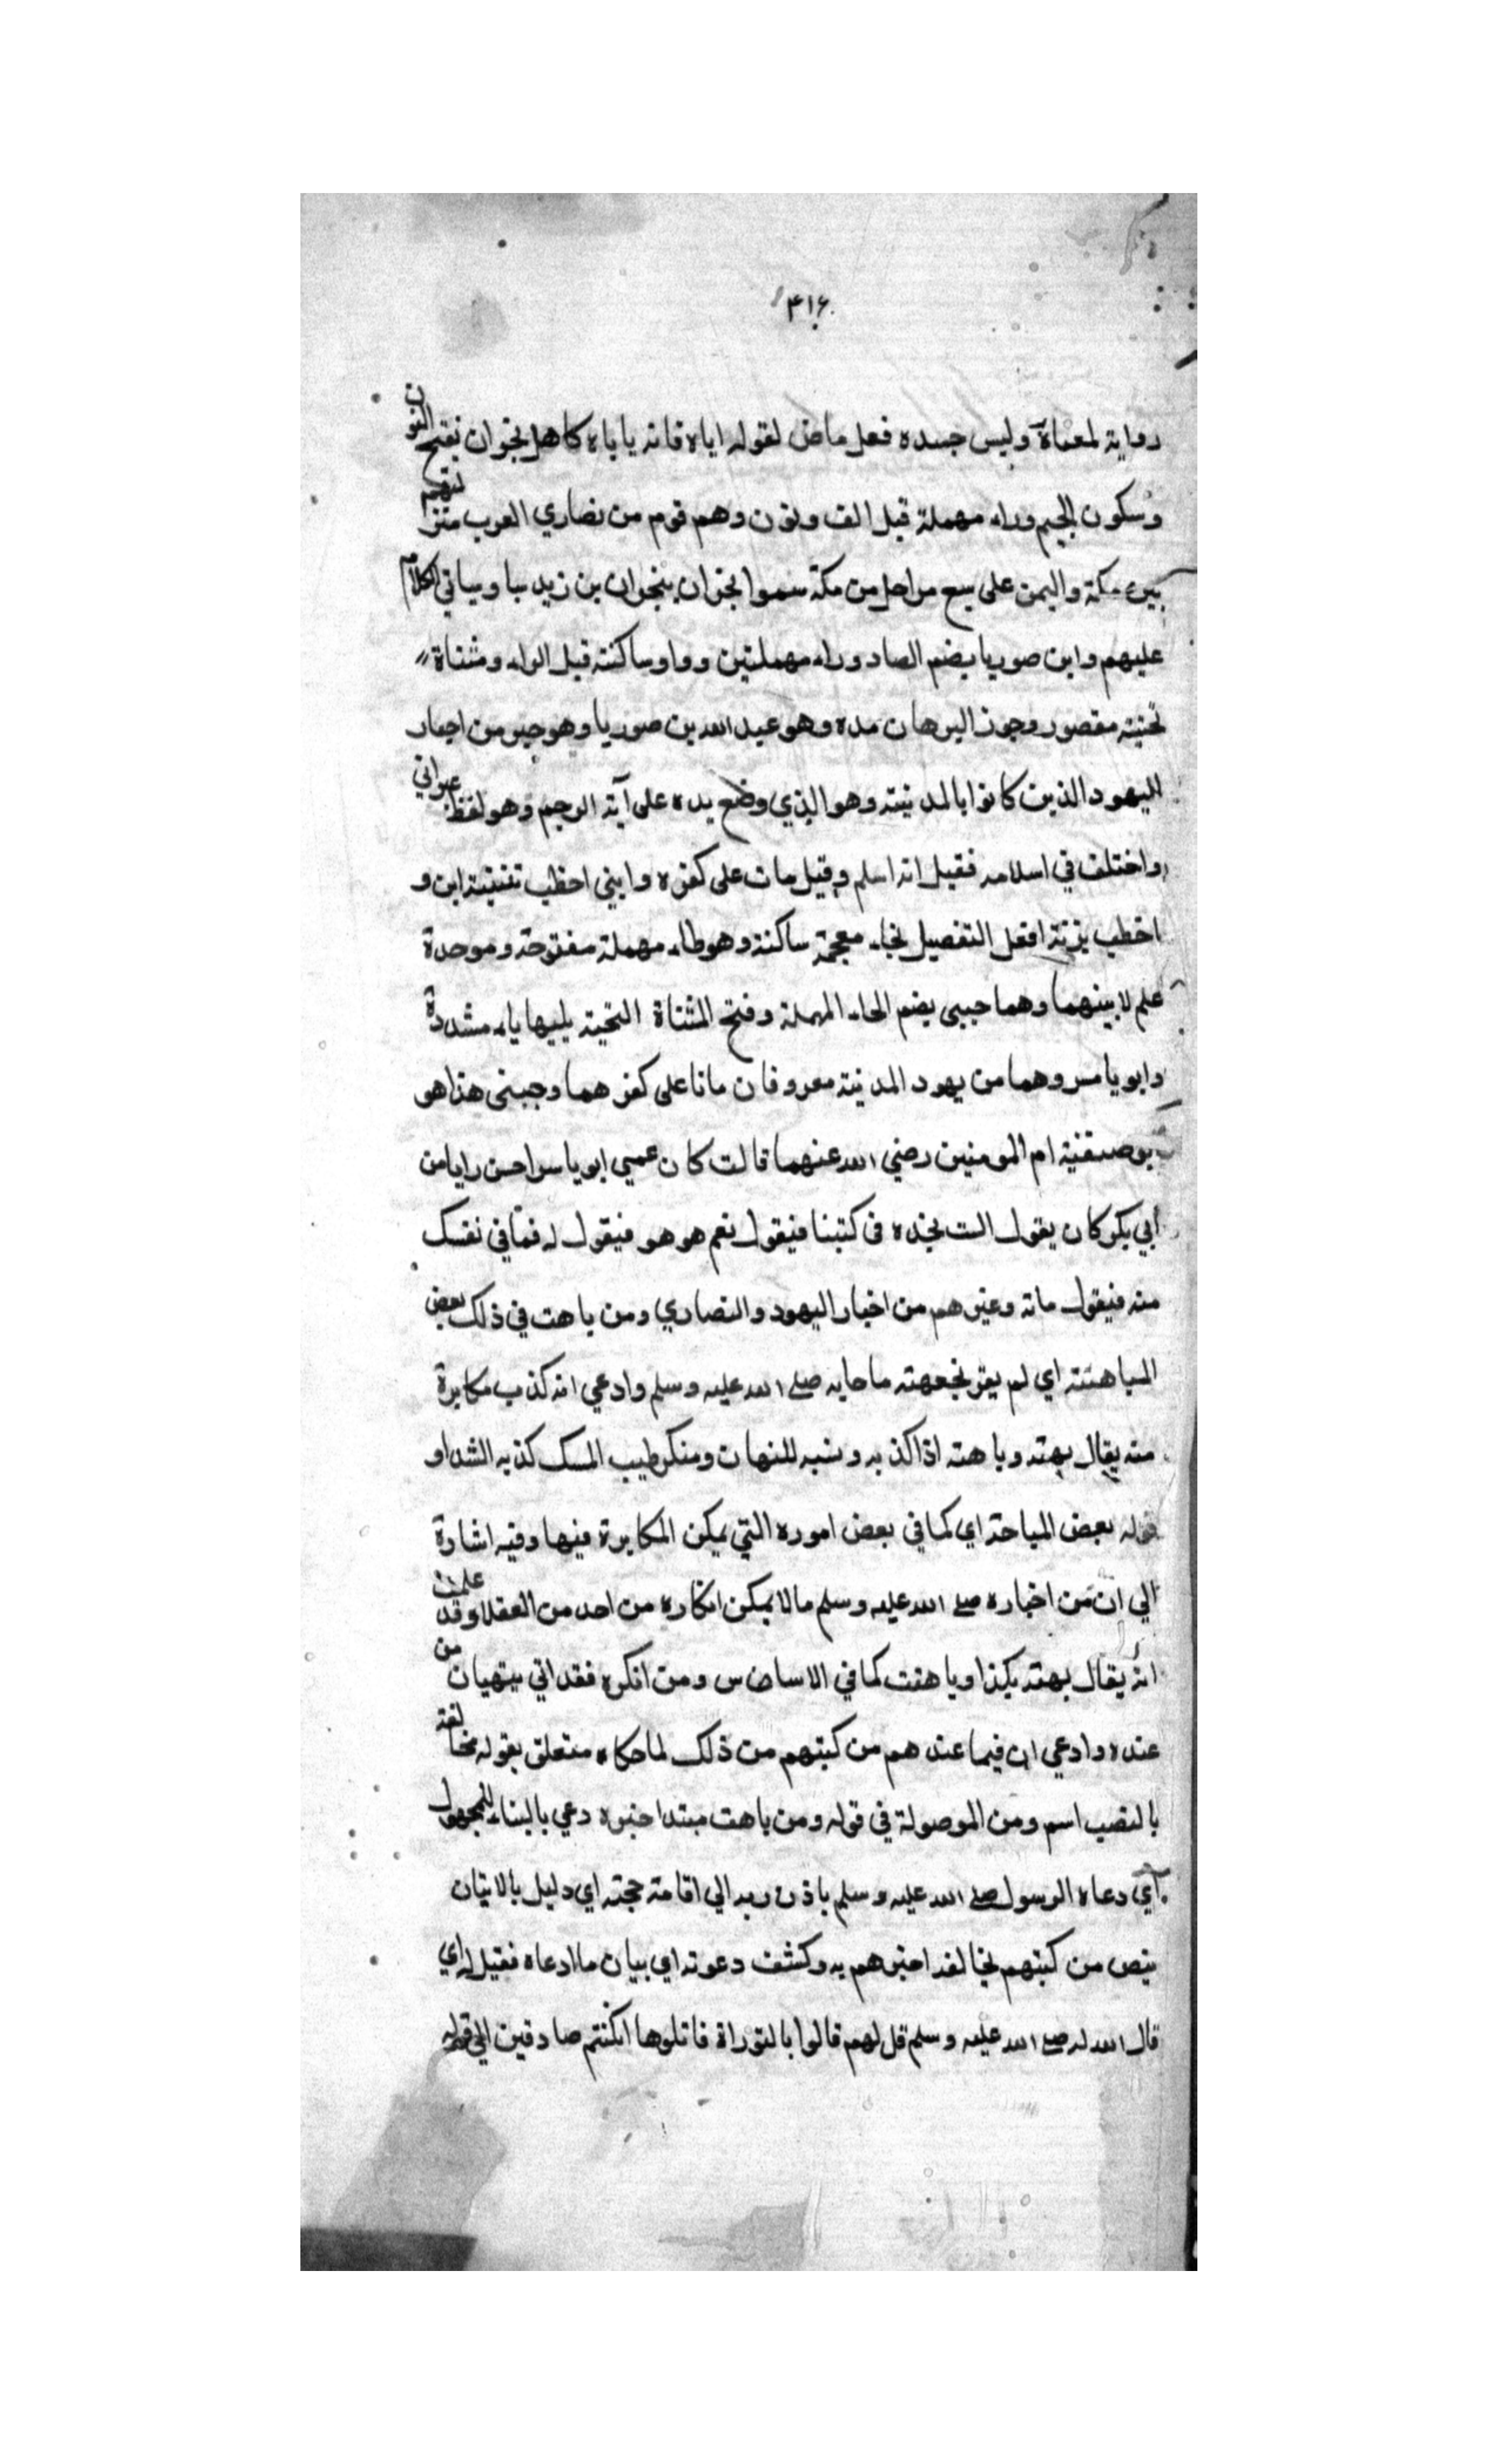 ۴۱۶
رواية لمعناه وليس جسده فعل ماض لقوله اياه فانه ياباه كاهل نجران بفتح النون
وسكون الجيم وراء مهملة قبل الف ونون وهم قوم من نصاري العرب منزلتهم
بين مكة واليمن على سبع مراحل من مكة سموا نجران بنجران بن زيد سبا وسياتي الكلام
عليهم وابن صوريا بضم الصاد وراء مهملتين وواو ساكنة قبل الراء ومثناة
تحتية مقصور وجوز البرهان مده وهو عبد الله بن صوريا وهو حبر من احبار
اليهود الذين كانوا بالمدينة وهو الذي وضع يده على آية الرجم وهو لفظ عبراني
واختلف في اسلامه فقيل انه اسلم وقيل مات على كفره وابني اخطب تثنية ابن و
اخطب بزنة افعل التفضيل بخاء معجمة ساكنة وهو طاء مهملة مفتوحة وموحدة
علم لابينهما وهما حيى بضم الحاء المهملة وفتح المثناة التحتية يليها ياء مشددة
وابو ياسر وهما من يهود المدينة معروفان ماتا على كفرهما وحيى هذا هو
ابو صفية ام المومنين رضي الله عنهما قالت كان عمي ابو ياسر احسن رايا من
ابي يكر كان يقول الست نجده في كتبنا فيقول نعم هو هو فيقول له فما في نفسك
منه فيقول ماته وغيرهم من اخبار اليهود والنصاري ومن باهت في ذلك بعض
المباهتة اي لم يقر بجهته ما جابه صلے الله عليه وسلم وادعي انه كذب مكابرة
منه يقال بهته وباهته اذا كذبه ونسبه للبهتان ومنكر طيب المسك كذبه الشداو
قوله بعض المباحتة اي كما في بعض اموره التي يمكن المكابرة فيها وفيه اشارة
الي ان من اخباره صلے الله عليه وسلم مالا يمكن انكاره من احد من العقلا وقد علمت
انه يقال بهته بكذا وباهت كما في الاساس ومن انكره فقد اتي ببهتان من
عنده وادعي ان فيما عندهم من كتبهم من ذلك لما حكاه متعلق بقوله مخالفة
بالنصب اسم ومن الموصولة في قوله ومن باهت مبتدا خبره دعي بالبناء للمجهول
اي دعاه الرسول صلے الله عليه وسلم باذن ربه الي اقامة حجته اي دليل بالاتيان
بنص من كتبهم يخالف اخبرهم به وكشف دعوته اي بيان ما ادعاه فقيل له اي
قال الله له صلے الله عليه وسلم قل لهم فاتوا بالتوراة فاتلوها ان كنتم صادقين الي قوله